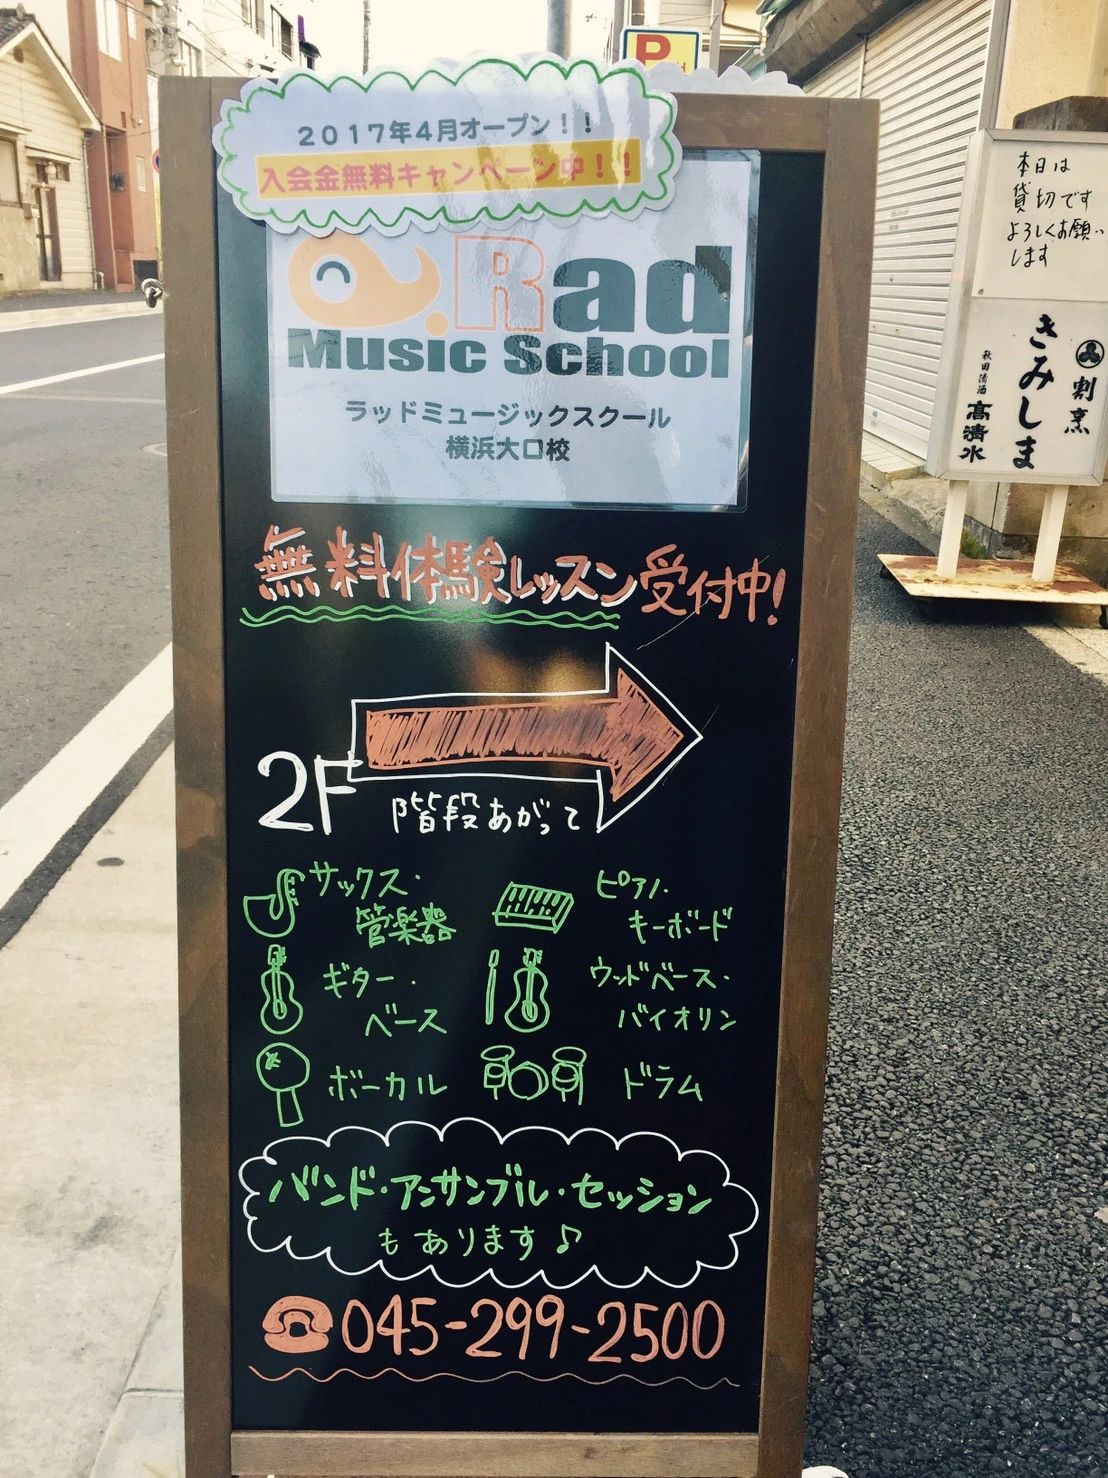 2017年4月オープン！！
入会金無料キャンペーン中！！
Rad
Music School
ラッドミュージックスクール
横浜大口校
無料体験レッスン受付中！
2F
階段あがって
サックス・
管楽器
ピアノ・
キーボード
ギター・
ベース
ウッドベース・
バイオリン
ボーカル
ドラム
バンド・アンサンブル・セッション
もあります♪
045-299-2500
P
本日は
貸切です
よろしくお願い
します
割烹
きみしま
秋田清酒
高清水